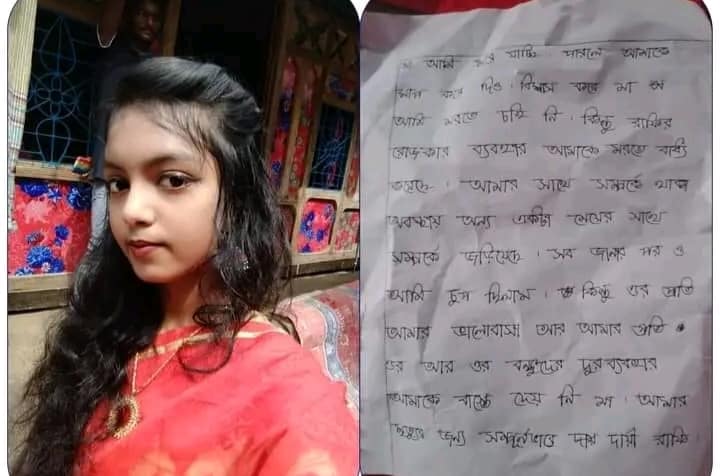 মা আমি মরে যাচ্ছি পারলে আমাকে
মাপ করে দিও । বিশ্বাস করো মা
আমি মরতে চাই নি । কিন্তু রাব্বির
রোজকার ব্যবহার আমাকে মরতে বাধ্য
করেছে । আমার সাথে সম্পর্কে থাকা
অবস্থায় অন্য একটা মেয়ের সাথে
সম্পর্কে জড়িয়েছে । সব জানার পর ও
আমি চুপ ছিলাম । কিন্তু ওর প্রতি
আমার ভালোবাসা আর আমার প্রতি
ওর আর ওর বন্ধুদের দুরব্যবহার
আমাকে বাঁচতে দেয় নি মা । আমার
মৃত্যুর জন্য সম্পূর্নভাবে দায় দায়ী